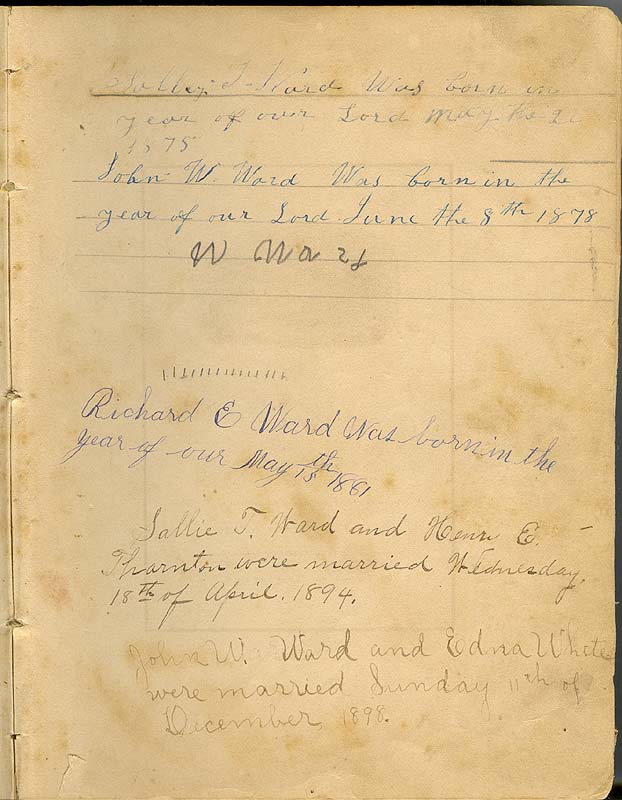 Salley T. Ward Was born in
year of our Lord May the
1875
John W. Ward Was born in the
year of our Lord June the 8th 1878
W Wa
Richard E Ward Was born in the
year of our May 15th 1861
Sallie T. Ward and Henri E.
Thornton were married Wednesday,
18th of April. 1894.
John W. Ward and Edna White
were married Sunday 11th of
December 1898.